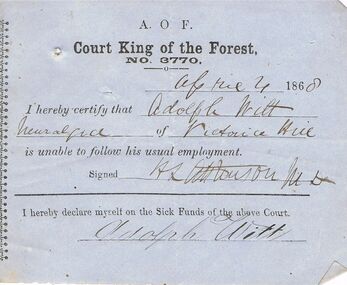 A. O. F.
Court King of the Forest,
NO. 3770.
April 4 1868
I hereby certify that Adolph Witt
Neuralgia of Victoria Hill
is unable to follow his usual employment.
Signed H L Atkinson M D
I hereby declare myself on the Sick Funds of the above Court.
Adolph Witt